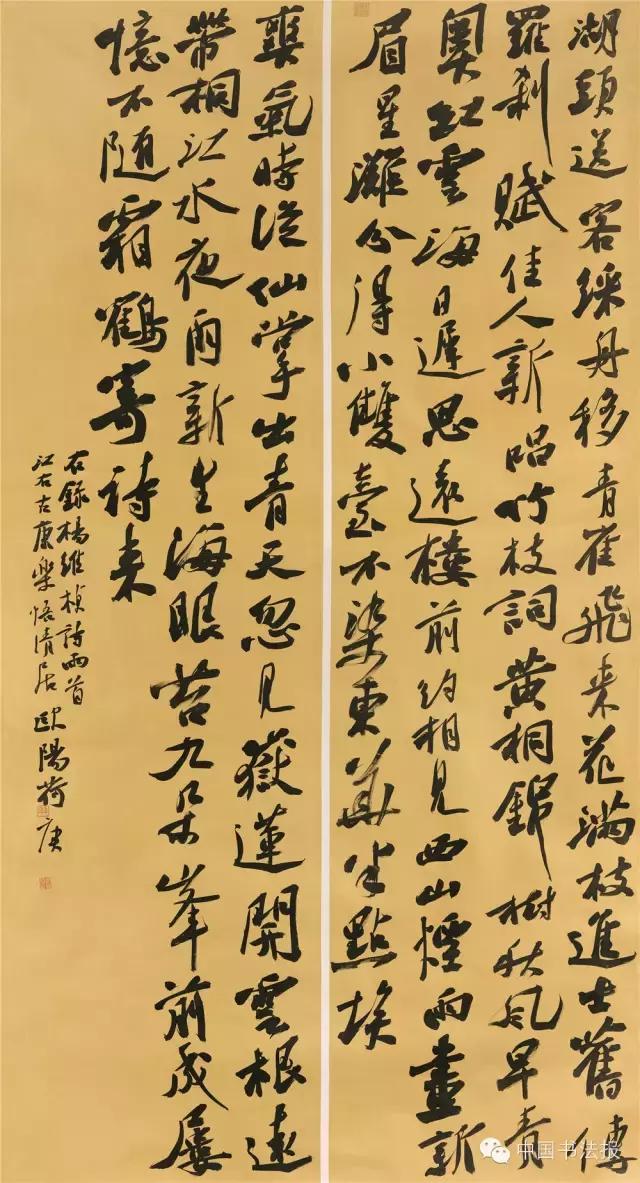 湖頭送客綵舟移青雀飛來花滿枝進士舊傳
羅刹賦佳人新唱竹枝詞黄桐錦樹秋風早
奥紅雲海日遲思遠樓前約相見西山煙雨畫新
眉星灘分得小雙臺不染東華半點埃
爽氣時從仙掌出青天忽見嶽蓮開雲根遠
帶桐江水夜雨新生海眼苔九朵峯前成屢
憶不隨霜鶴寄詩來
右錄楊維楨詩兩首
江右古康樂悟清居歐陽荷庚
中国书法报